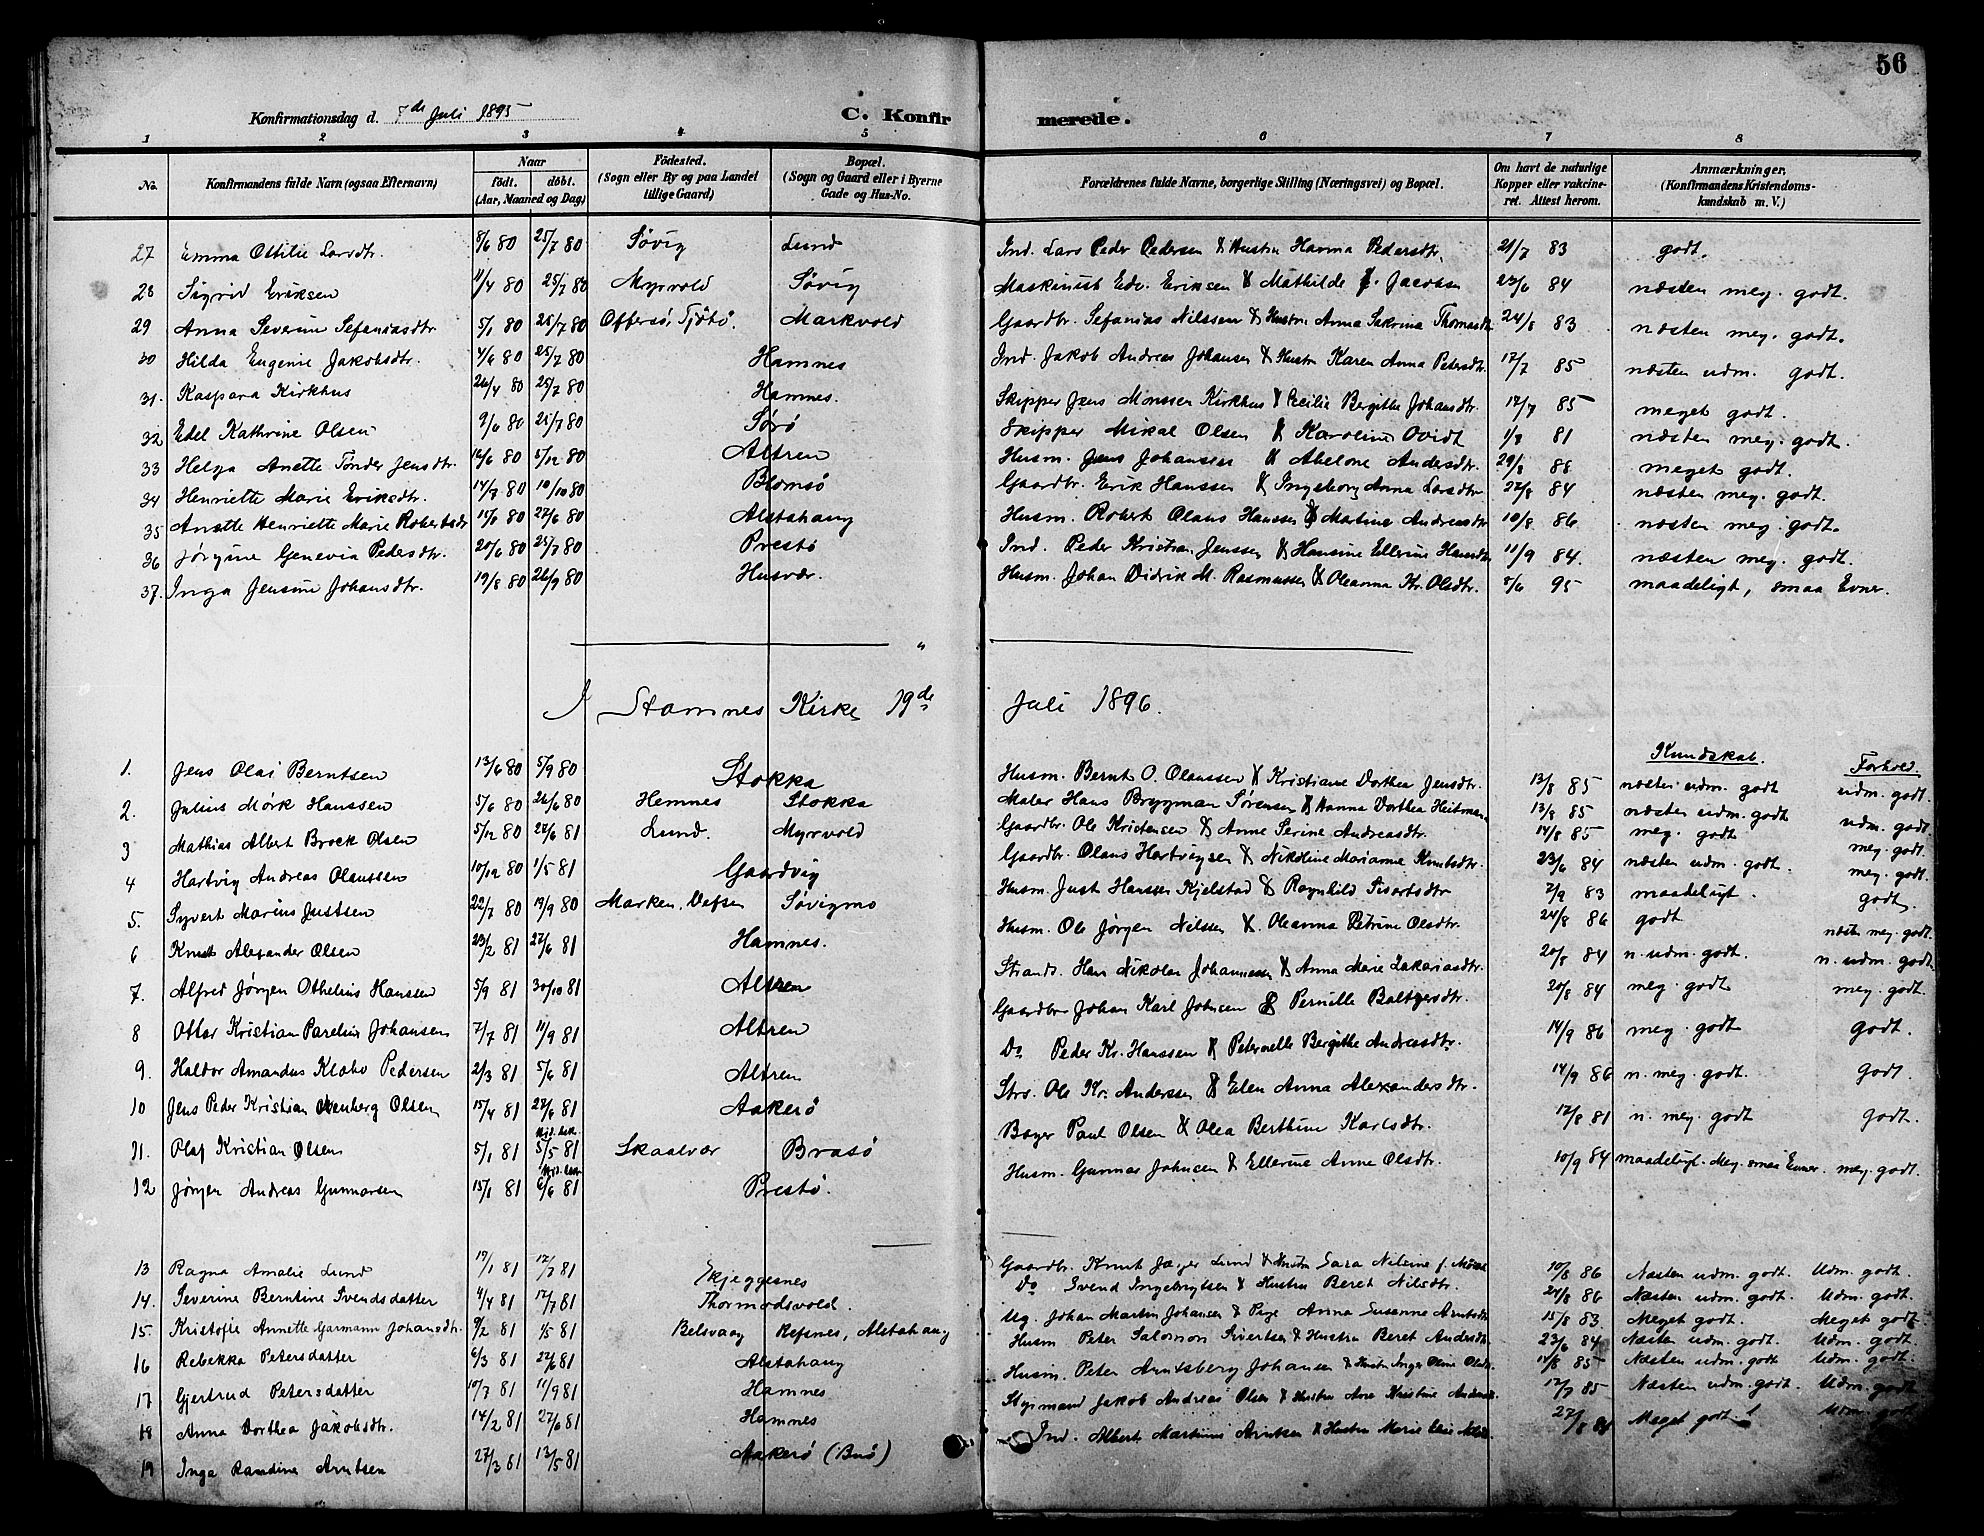 56
Konfirmationsdag d. 7de Juli 1895 C. Konfirmerede.
1 2 3 4 5 6 7 8
No. Konfirmandens fulde Navn (ogsaa Efternavn) Naar født. døbt. (Aar, Maaned og Dag) Fødested. (Sogn eller By og paa Landet tillige Gaard) Bopæl. (Sogn og Gaard eller i Byerne Gade og Hus-No. Forældrenes fulde Navne, borgerlige Stilling (Næringsvei) og Bopæl. Om havt de naturlige Kopper eller vakcineret. Attest herom. Anmærkninger. (Konfirmandens Kristendomskundskab m. V.)
27 Emma Ottilie Larsdtr. 8/6 80 25/7 80 Søvig Lund Ind. Lars Peder Pedersen & Hustru Hanna Pedersdtr. 21/7 83 godt.
28 Sigrid Eriksen 11/4 80 25/7 80 Myrvold Søvig Maskinist Edv. Eriksen & Mathilde f. Jacobsen 23/6 84 næsten meg. godt.
29 Anna Severine Sefaniasdtr 5/1 80 25/7 80 Offersø, Tjøtø. Markvold Gaardbr. Sefanias Nilssen & Hustru Anna Sakrina Thomasdtr 24/8 83 næsten meg. godt.
30 Hilda Eugenie Jakobsdtr. 4/6 80 25/7 80 Hamnes Ind. Jakob Andreas Johansen & Hustru Karen Anna Petersdtr. 17/7 85 næsten udm. godt.
31. Kaspara Kirkhus 26/4 80 25/7 80 Hamnes. Skipper Jens Monssen Kirkhus & Cecilia Bergithe Johansdtr. 17/7 85 meget godt.
32 Edel Kathrine Olsen 9/6 80 25/7 80 Sørø Skipper Mikal Olsen & Karoline Ovidt 1/8 81 næsten meg. godt
33 Helga Anette Tønder Jensdtr. 16/6 80 5/12 80 Altren Husm. Jens Johansen & Abelone Andersdtr. 29/8 meget godt.
34 Henriette Marie Eriksdtr. 14/7 80 10/10 80 Blomsø Gaardbr. Erik Hanssen & Ingeborg Anna Larsdtr 27/8 84 næsten meg. godt.
35 Anette Henriette Marie Robertsdtr 27/6 80 Alstahaug Husm. Robert Olaus Hanssen & Martine Andreasdtr 10/8 86 næsten meg. godt.
36 Jørgine Genevia Pedersdtr. 20/6 80 25/7 80 Prestø Ind. Peder Kristian Jenssen & Hansine Ellerine Hansdtr 11/9 84. næsten meg. godt.
37. Inga Jensine Johansdtr. 19/8 80 26/9 80 Husvær. Husm. Johan Didrik M. Rasmussen & Oleanna Kr. Olsdtr. 5/6 95 maadeligt, smaa Evner.
I Stamnes Kirke 19de Juli 1896.
Kundskab. Forhold.
1. Jens Olai Berntsen 13/6 80 5/9 80 Stokka Husm. Bernt O. Olaussen & Kristiane Dorthea Jensdtr. 13/8 85 næsten udm. godt udm. godt.
2. Julius Mørk Hanssen 5/6 80 26/6 80 Hemnes Stokka Maler Hans Bryggman Sørensen & Hanna Dorthea Heitman 13/8 85 næsten udm. godt udm. godt.
3 Mathias Albert Brock Olsen 5/12 80 27/6 81 Lund. Myrvold Gaardbr. Ole Kristensen & Anne Serine Andreasdtr. 14/8 85 meg. godt meg. godt.
4 Hartvig Andreas Olaussen 10/12 80 1/5 81 Gaardvig Gaardbr. Olaus Hartvigsen & Nikoline Marianne Knutsdtr. 23/6 84 næsten udm. godt. meg. godt.
5. Syvert Marius Justsen 22/7 80 19/9 80 Marken, Vefsen Søvigmo Husm. Just Hanssen Kjelstad & Ragnhild Sivertsdtr 7/9 83 maadeligt. godt.
6 Knut Alexander Olsen 23/2 81 27/6 81 Hamnes. Husm. Ole Jørgen Nilssen & Oleanna Petrine Olsdtr. 24/8 86 godt næsten meg. godt.
7. Alfred Jørgen Othelius Hanssen 5/9 81 30/10 81 Altren Strands. Hans Nikolai Johannessen & Anna Marie Zakariasdtr. 20/8 84 n. udm. godt. n. udm. godt.
8 Ottar Kristian Parelius Johansen 7/7 81 11/9 81 Altren Gaardbr Johan Karl Johnsen & Pernille Baltzersdtr. 20/8 84 meg. godt meg. godt.
9. Haldor Amandus Klæbo Pedersen 2/3 81 5/6 81 Altren Do Peder Kr. Hanssen & Peternelle Bergithe Andreasdtr. 14/9 86 meg. godt godt.
10 Jens Peder Kristian Olsen 15/4 81 27/6 81 Aakerø Strs. Ole Kr. Anderssen & Elen Anna Alexandersdtr. 14/9 86 n. meg. godt. godt.
11. Olaf Kristian Olsen 5/1 81 5/5 81 Skaalvær Brasø Bøger Paul Olsen & Olea Berthine Karlsdtr. 17/8 81 n. meg. godt godt.
12 Jørgen Andreas Gunnarsen 15/1 81 6/6 81 Prestø. Husm. Gunnar Johnsen & Ellerine Anne Olsdtr. 10/9 84 maadeligt. Meg. smaa Evner. meg. godt.
13 Ragna Amalie Lund 19/1 81 17/7 81 Skjeggesnes Gaardbr. Knut Jæger Lund & Hustru Sara Nilsine f. 10/8 86 Næsten udm. godt. Udm. godt.
14. Severine Berntine Svendsdatter 4/4 81 17/7 81 Thormodsvold. Do Svend Ingebrigtsen & Hustru Beret Nilsdtr. 24/8 86 Næsten udm. godt. Udm. godt.
15. Kristofie Annette Garmann Johansdtr. 9/2 81 1/5 81 Belsvaag Refsnes, Alstahaug Ug. Johan Martin Johansen & Pige Anna Susanne Arntsdtr 15/8 83 Meget godt. Meget godt
16 Rebekka Petersdatter 6/3 81 27/6 81 Alstahaug Husm Peter Salomon Sivertsen & Hustru Beret Andersdtr 23/6 84 Næsten udm. godt. Udm. godt.
17 Gjertrud Petersdatter 10/7 81 11/9 81 Hamnes Husm. Peter Arntsberg Johansen & Hustru Inger Oline 14/8 85 Næsten udm. godt Udm. godt.
18 Anna Dorthea Jakobsdtr. 14/2 81 27/6 81 Hamnes Jakob Andreas Olsen & Hustru Ane Kristine 17/7 85 Næsten udm. godt. Udm. godt
19 Inga Randine Arntsen 27/3 81 13/5 81 Aakerø (Buø) Ind. Albert Martinus Arntsen & Hustru Marie Elise 27/8 Meget godt Udm. godt